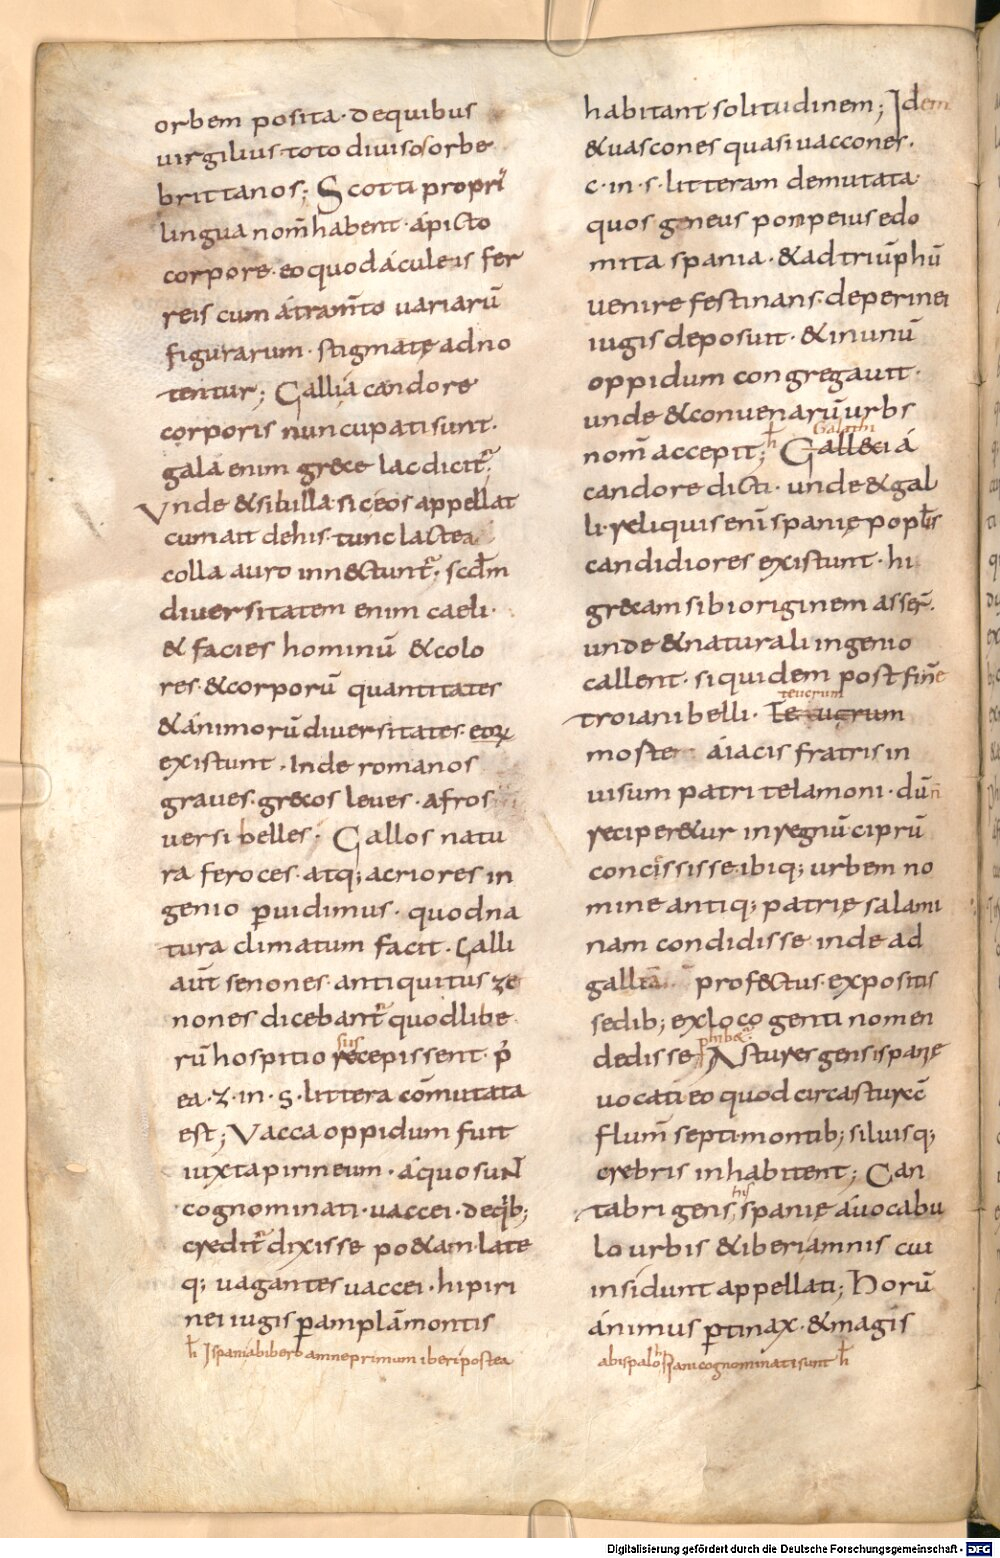 orbem posita· dequibus
uirgilius· toto diuisosorbe
brittanos; Scotti propri
lingua nom̄ habent· ápicto
corpore· eo quod áculeis fer
reis cum átram̄to uariarū
figurarum· stigmatę adno
tentur; Gallia candore
corporis nuncupati sunt·
gala enim grece lac dicit̄·
Vnde & sibilla sic eos appellat
cum ait dehis· tunc lactea
colla auro innectunt̄· scd̄m
diuersitatem enim caeli·
& facies hominū & colo
res· & corporū quantitates
& ánimorū diuersitates·
existunt· Inde romanos
graues· grecos leues· afros
uersi belles· Gallos natu
ra feroces· atq; acriores in
genio ꝑuidimus· quod na
tura climatum facit· Galli
aūt senones· antiquitus ze
nones dicebant̄ quod libe
rū hospitio recepissent· p̄
sus
ea· z· in· s· littera cōmutata
est; Vacca oppidum fuit
iuxta pirineum· áquo sunt
cognominati· uaccei· de qib;
credit̄ dixisse po&am· late
q; uagantes uaccei· hi piri
nei iugis ꝑ amplā montis
h̄ Ispania ab ibero amne primum iberi postea
habitant solitudinem; Idem
& uascones quasi uaccones·
c· in· s· litteram demutata·
quos geneus pompeius edo
mita spania· & ad triūphū
uenire festinans· deperinei
iugis deposuit· & in unū
oppidum congregauit·
unde & conuenarū urbs
nom̄ accepit; h̄ Galleci á
candore dicti· unde & gal
li· reliquis enī spanię popl̄is
candidiores existunt· hi
grecam sibi originem asser̄·
unde & naturali ingenio
callent· siquidem post fin̄e
troiani belli· Te ugrum
teucrum
moste áiacis fratris in
uisum patri telamoni· dū
reciper&ur in regnū ciprū
concississe· ibiq; urbem no
mine antiq; patrię salami
nam condidisse· inde ad
gallia profectus· expositis
sedib; ex loco genti nomen
dedisse; Astures gens ispanę
uocati eo quod circa sturec̄
flum̄ septi montib; siluisq;
crebris inhabitent; Can
tabri gens spanię á uocabu
his
lo urbis & iberi amnis cui
insidunt appellati; Horū
ánimus ꝑtinax· & magis
ab ispalo hispani cognominati sunt h̄
Digitalisierung gefördert durch die Deutsche Forschungsgemeinschaft - DFG